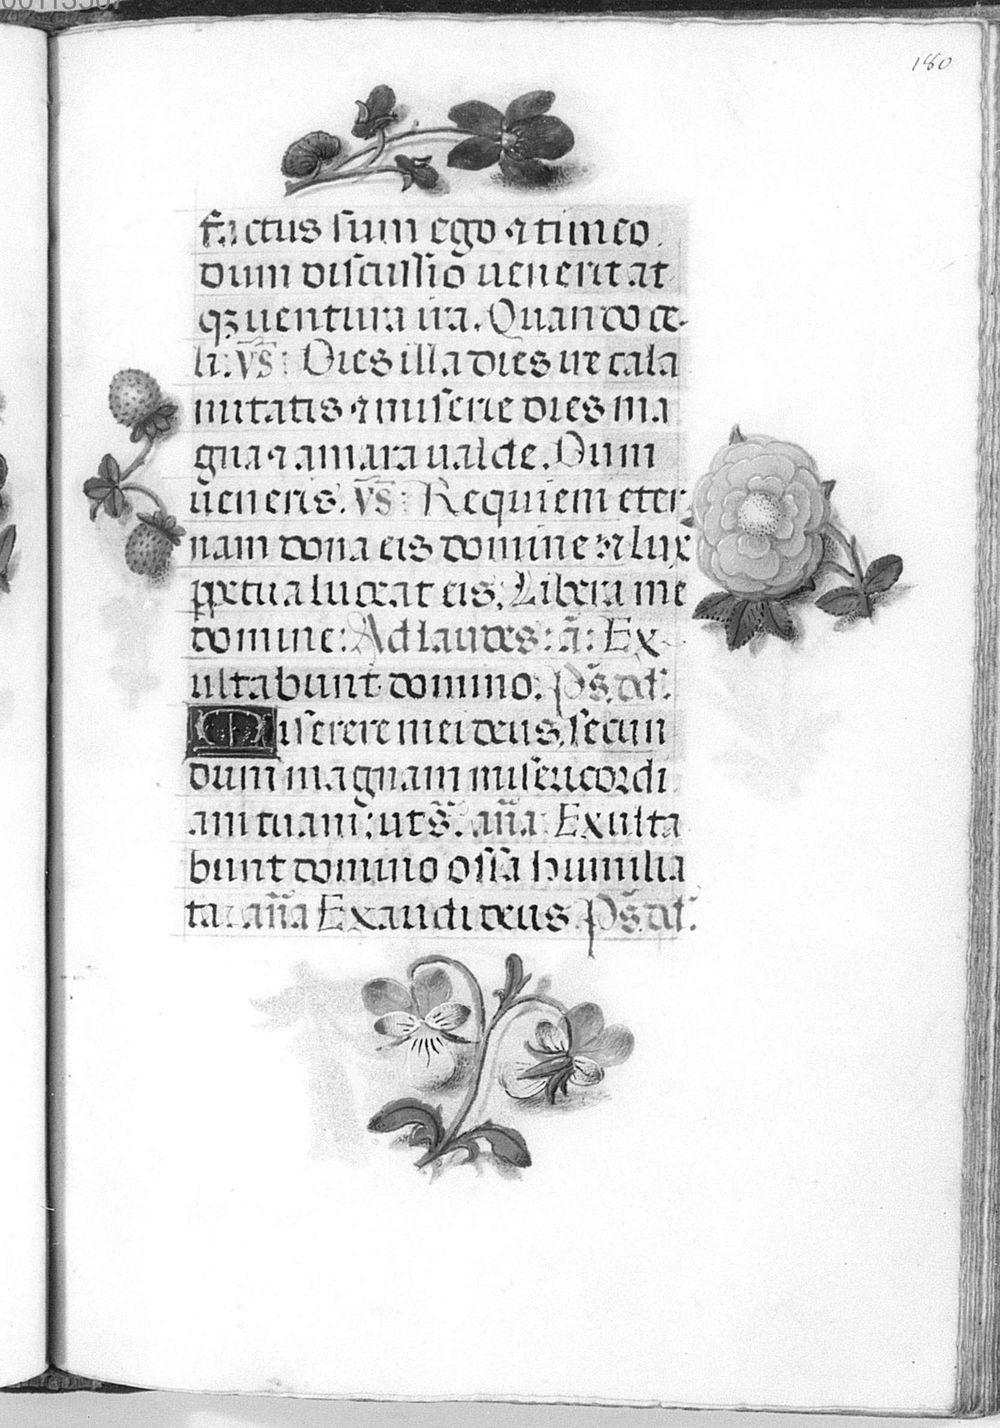 00113507
180
factus sum ego ⁊ timeo
dum discussiō uenerit at
qꝫ uentura ira. Quando ce-
li: v̄s: Dies illa dies ire cala
mitatis ⁊ miserie dies ma
gna ⁊ amara ualde. Dum
ueneris. v̄s: Requiem eter
nam dona eis domine: ⁊ lux
ꝑpetua luceat eis: Libera me
domine: Ad laudes: ā: Ex
ultabunt domino: Ps̄. dd̄.
Miserere mei deus, secun
dum magnam misericordi
am tuam: ut s̄. an̄a Exulta
bunt domino ossa humilia
ta: an̄a Exaudi deus. Ps̄. dd̄.